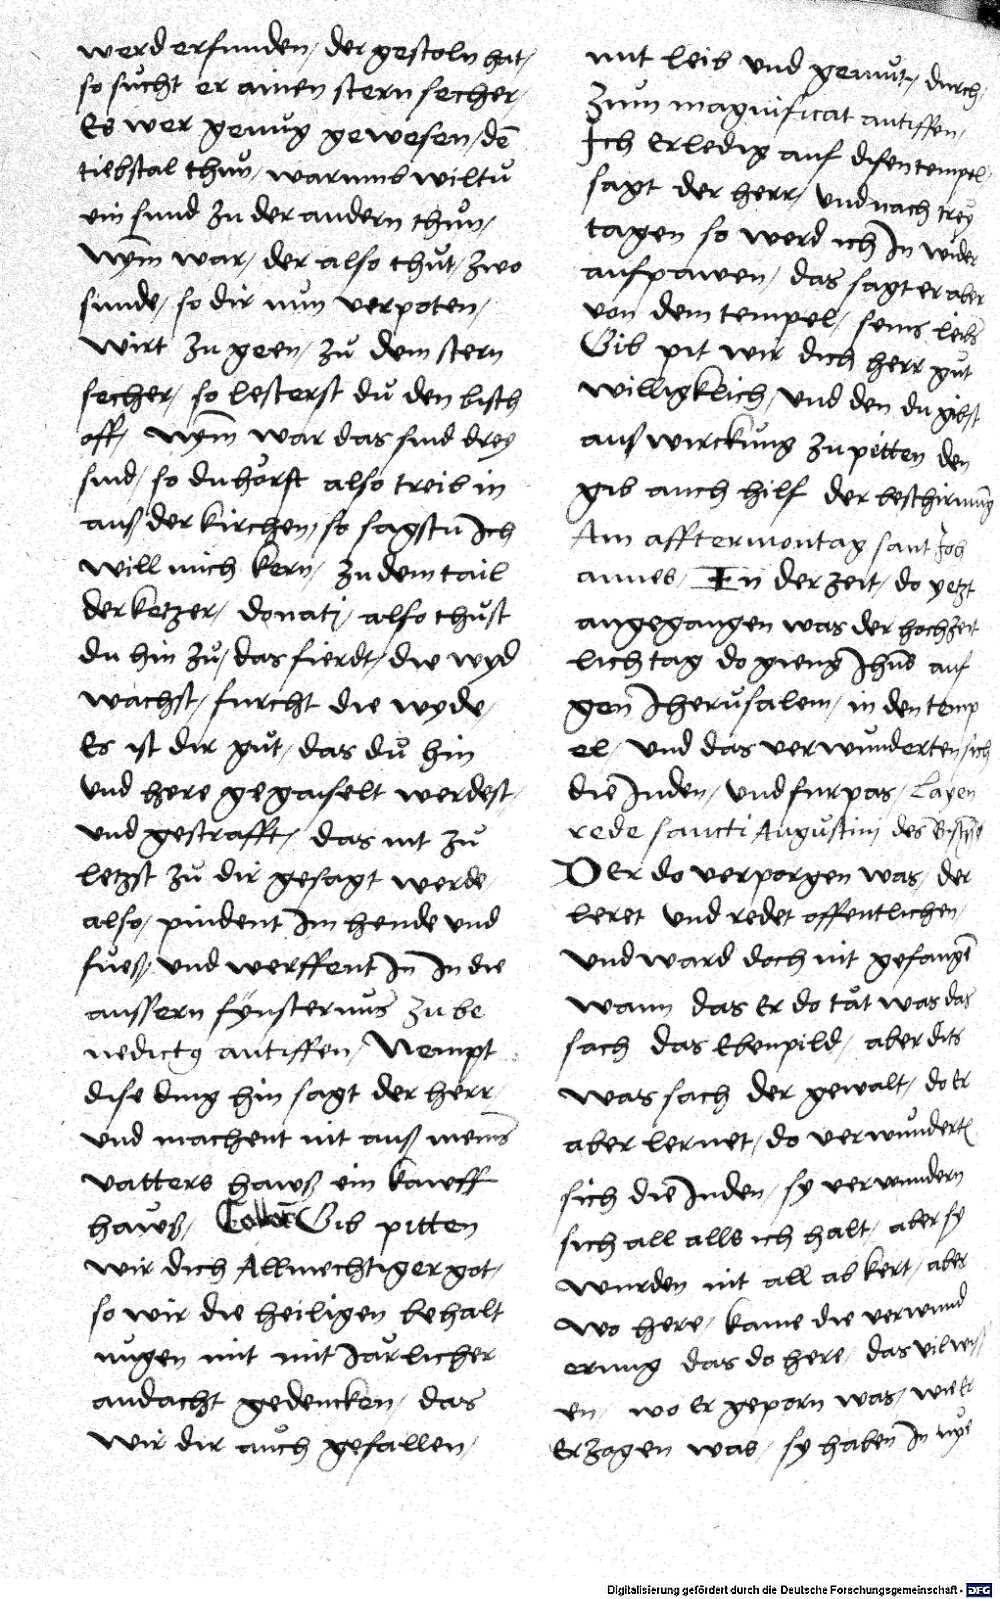 werd erfunden / der gestoln hat /
so sücht er ainen stern secher /
Es wer genüg gewesen / dē
tiebstal thün / warumb wiltü
ein sund zu der andern thün /
Nym̄ war / der also thüt / zwo
sunde / so dir nun verpoten /
wirt zu geen / zü dem stern
secher / so lesterst dü den bisch
off / Nym̄ war das sind drey
sind / so du hörst also treib in
auß der kirchen / so sagstu Ich
will mich kern / zu dem tail
der ketzer / donati / also thüst
du hin zü / das fierdt / die wyd
wachst / furcht die wyde /
Es ist dir güt / das dü hin
und here gegaiselt werdest /
und gestrafft / das nit zü
letzst zü dir gesagt werde /
also / pindent Im hende und
füeß / und werffent In In die
aussern fÿnsternüs zu be
nedictꝯ antiffen / Nempt
dise ding hin sagt der herr /
und machent nit auß meins
vatters hawß ein kawff
hawß / Gib pitten
wir dich Allmechtiger got /
so wir die heiligen behalt
nugen mit mit Jarlicher
andacht gedencken / das
wir dir aüch gefallen /
mit leib und gemüt / durch /
Züm magnificat antiffen /
Ich Erledig auf disen tempel /
sagt der herr / und nach trey
tagen so werd ich In wider
aufpawen / das sagt er aber
von dem tempel / seins leibs
Gib pit wir dich herr güt
willigklich / und den du gibst
auß wirckung zu pitten den
gib auch hilf der beschirmūg
Am afftermontag sant Joh
annes / In der zeit / do yetzt
angegangen was der hochzeit
lich tag do gieng Ihūs auf
gen Jherüsalem / in den temp
el / und das verwünderten sich
die Juden / und furpas / Layen
rede sancti Augüstini des
DEr do verporgen was / der
leret und redet offentlichen /
und ward doch nit gefangē
wann das Er do tät was das
sach das Ebenpild / aber dits
was sach der gewalt / do Er
aber lernet / do verwündertē
sich die Juden / sy verwundern
sich all alls ich halt / aber sy
wurden nit all ab kert / aber
wo here / kame die verwund
erung das do here / das vil west
en / wo Er geporn was / wie Er
Erzogen was / sy haben In nye